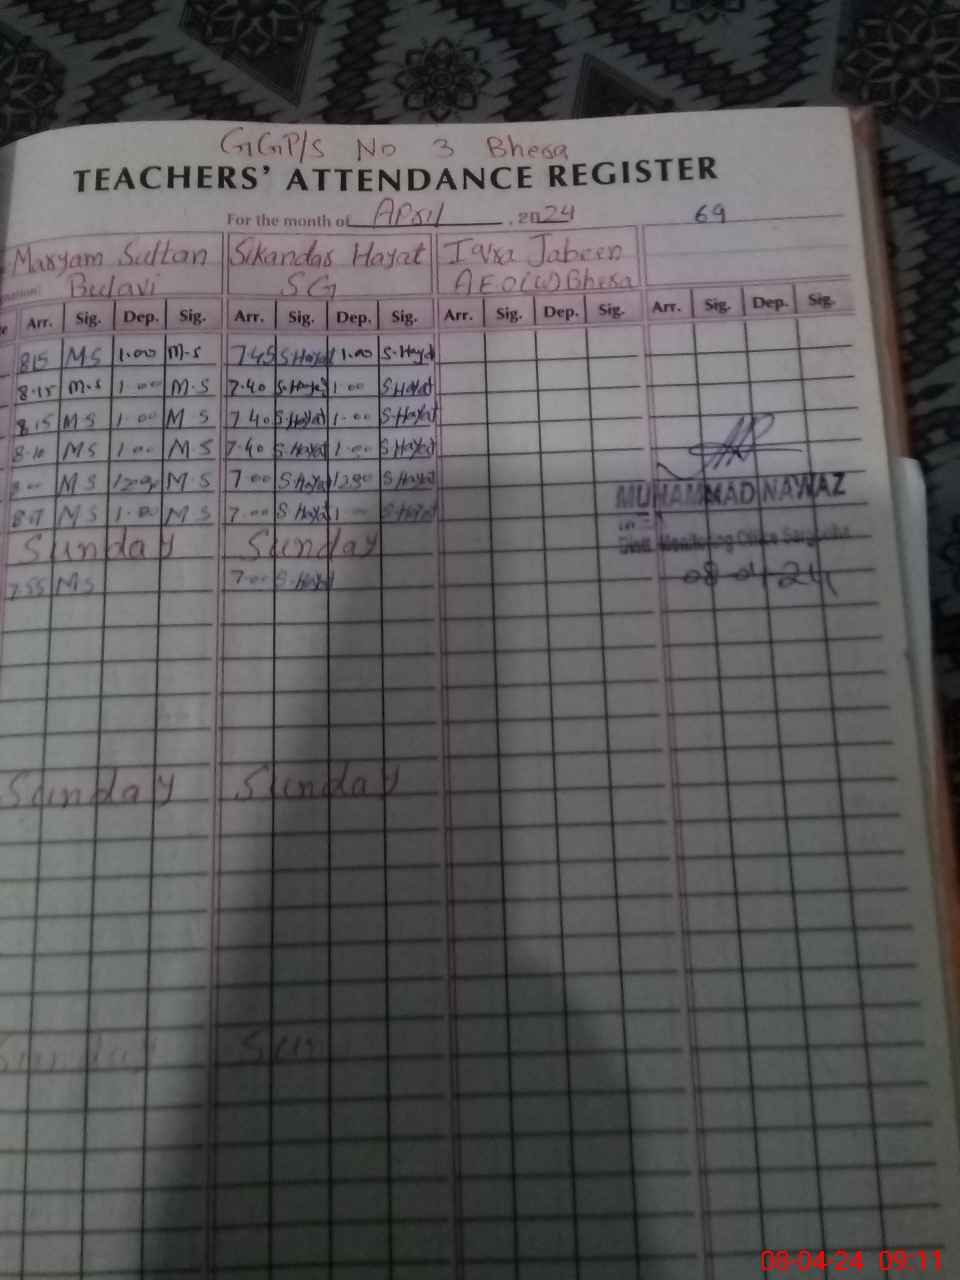 GGP/S No 3 Bhera
TEACHERS' ATTENDANCE REGISTER
For the month of April , 2024 69
Maryam Sultan Sikandar Hayat Iqra Jabeen
SG AEO(W) Bhera
Arr. Sig. Dep. Sig. Arr. Sig. Dep. Sig. Arr. Sig. Dep. Sig. Arr. Sig. Dep. Sig.
815 M.S 1.00 M.S 7.45 S.Hayat 1.00 S.Hayat
8.15 M.S 1.00 M.S 7.40 S.Hayat 1.00 S.Hayat
8.15 M S 1.00 M S 7.40 S.Hayat 1.00 S.Hayat
8.10 M S 1.00 M S 7.40 S.Hayat 1.00 S.Hayat
8.00 M S M.S 7.00 S.Hayat 1230 S.Hayat
MUHAMMAD NAWAZ
8.07 M S 1.00 M S 7.00 S.Hayat 1.00 S.Hayat
Sunday Sunday
Distt. Monitoring Office Sargodha
7.55 M S 7.00 S.Hayat
08 04 24
Sunday Sunday
Sunday Sun
08-04-24 09:11